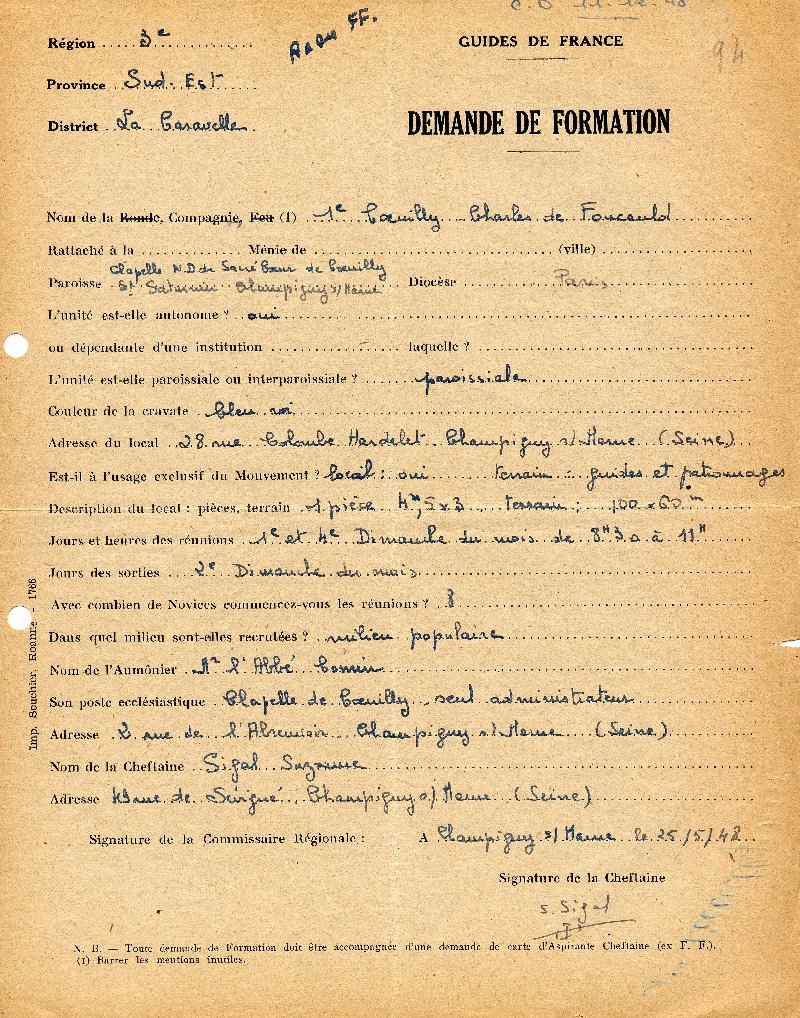 C.D. 11.12.48
Région 3e
FF.
GUIDES DE FRANCE
94
Province Sud-Est
District La Caravelle
DEMANDE DE FORMATION
Nom de la Ronde, Compagnie, Feu (1) 1e Cœuilly Charles de Foucauld
Rattaché à la Ménie de (ville)
Chapelle N.D du Sacré Cœur de Cœuilly
Paroisse St Saturnin Champigny s/Marne Diocèse Paris
L'unité est-elle autonome ? oui
ou dépendante d'une institution laquelle ?
L'unité est-elle paroissiale ou interparoissiale ? paroissiale
Couleur de la cravate bleu roi
Adresse du local 28 rue Colombe Hardelet Champigny s/Marne (Seine)
Est-il à l'usage exclusif du Mouvement ? local : oui terrain : guides et patronnages
Description du local : pièces, terrain 1 pièce 4m,5x3 terrain : 100 x 60 m
Jours et heures des réunions 1e et 4e Dimanche du mois de 8H30 à 11H
Jours des sorties 2e Dimanche du mois
Avec combien de Novices commencez-vous les réunions ? 8
Dans quel milieu sont-elles recrutées ? milieu populaire
Nom de l'Aumônier Mr l'Abbé
Son poste ecclésiastique Chapelle de Cœuilly seul administrateur
Adresse 2 rue de l'Abreuvoir Champigny s/Marne (Seine)
Nom de la Cheftaine Sigal Suzanne
Adresse 49 rue de Sévigné Champigny s/Marne (Seine)
Signature de la Commissaire Régionale : A Champigny s/Marne le 25/5/48
Signature de la Cheftaine
S. Sigal
N. B. — Toute demande de Formation doit être accompagnée d'une demande de carte d'Aspirante Cheftaine (ex F. F.).
(1) Barrer les mentions inutiles.
Imp. Souchier, Roanne - 1766